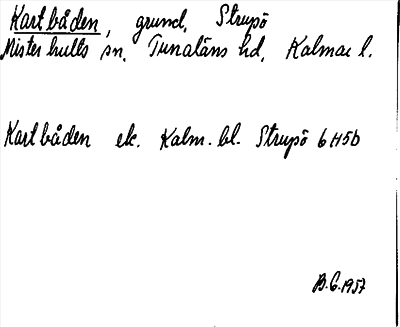 Kartbåden, grund, Strupö
Misterhults sn, Tunaläns hd, Kalmar l.
Kartbåden ek. Kalm. bl. Strupö 6H5b
B.G. 1957